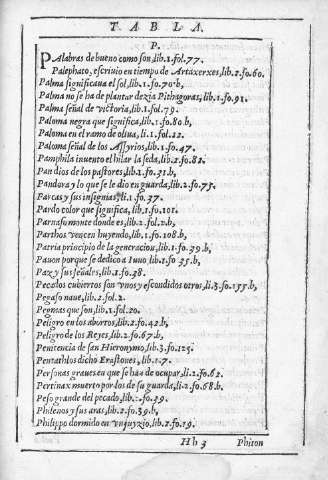 TABLA.
P.
PAlabras de bueno como son, lib.1.fol.77.
Palephato, escriuio en tiempo de Artaxerxes, lib.2.fo.60.
Palma significaua el sol, lib.1.fo.70.b,
Palma no se ha de plantar dezia Pithagoras, lib.1.fo.91.
Palma señal de victoria, lib.1.fol.79.
Paloma negra que significa, lib.1.fo.80.b,
Paloma en el ramo de oliua, li.1.fol.12.
Paloma señal de los Assyrios, lib.1.fo.47.
Pamphila inuento el hilar la seda, lib.2.fo.82.
Pan dios de los pastores, lib.1.fo.31.b,
Pandora y lo que se le dio en guarda, lib.2.fo.73.
Parcas y sus insignias, li.1.fo.37.
Pardo color que significa, lib.1.fo.101.
Parnaso monte donde es, lib.2.fol.2.b,
Parthos vencen huyendo, lib.1.fo.108.b,
Patria principio de la generacion, lib.1.fo.39.b,
Pauon porque se dedico a Iuno, lib.1.fo.35.b,
Paz y sus señales, lib.1.fo.38.
Pecados cubiertos son vnos y escondidos otros, li.3.fo.155.b,
Pegaso naue, lib.2.fol.2.
Pegmas que son, lib.1.fol.20.
Peligro en los abortos, lib.2.fo.42.b,
Peligro de los Reyes, lib.2.fo.67.b,
Penitencia de san Hieronymo, lib.3.fo.125.
Pentathlos dicho Erastones, lib.2.7.
Personas graues en que se hã de ocupar, li.2.fo.62.
Pertinax muerto por los de su guarda, li.2.fo.68.b.
Peso grande del pecado, lib.2.fo.39.
Philenos y sus aras, lib.2.fo.59.b,
Philippo dormido en vn juyzio, lib.2.fo.19.
Hh 3 Phiton